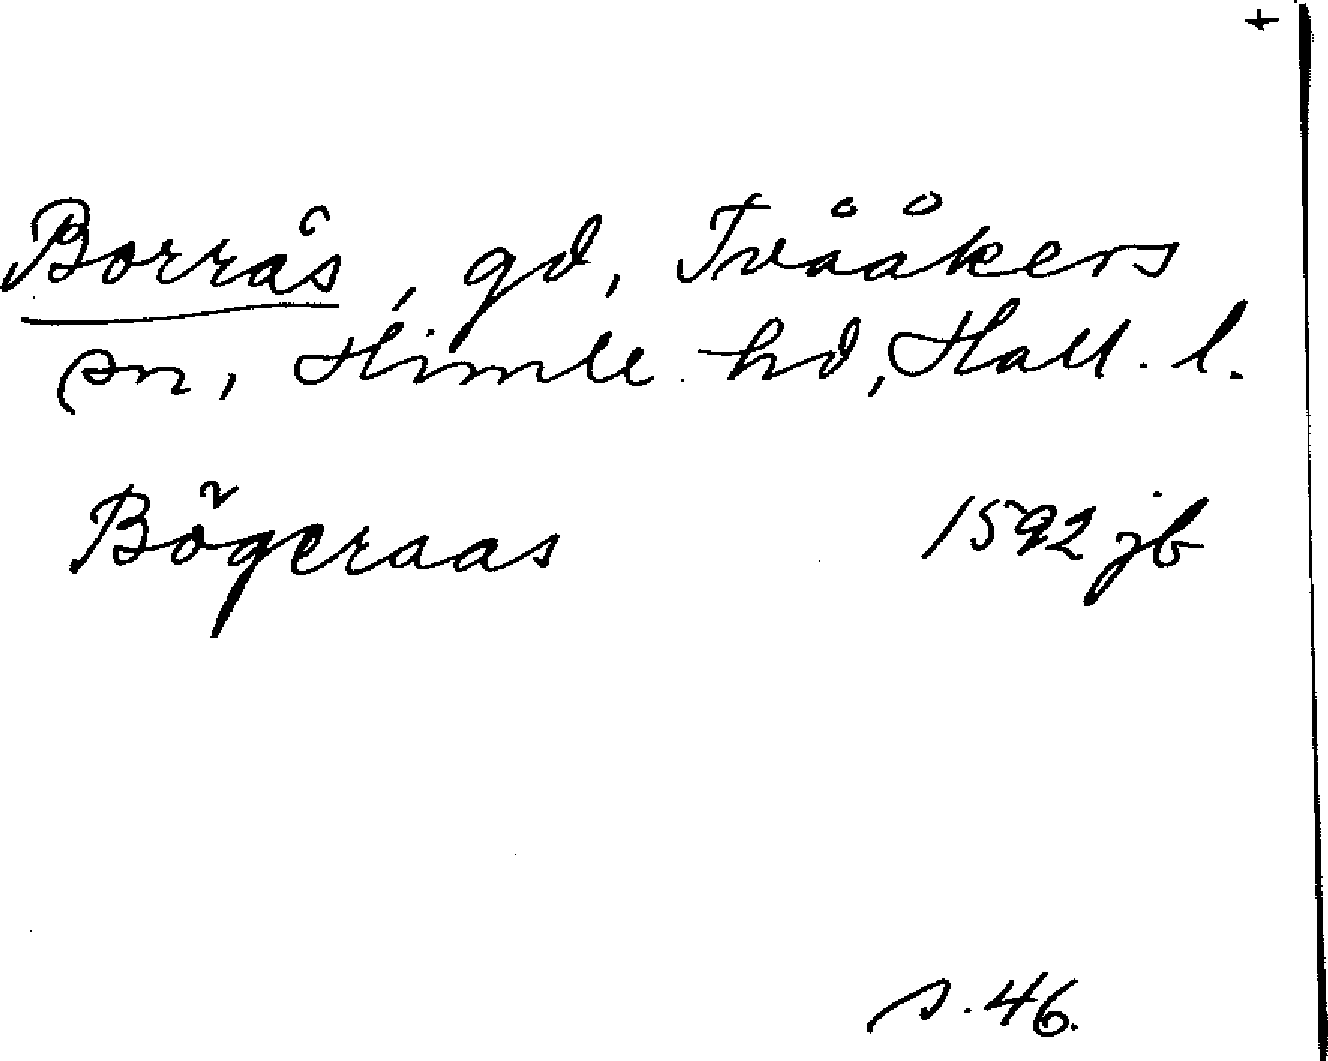 +
Borrås, gd, Tvååkers
sn, Himle hd, Hall. l.
Bögeraas 1592 jb
s. 46.